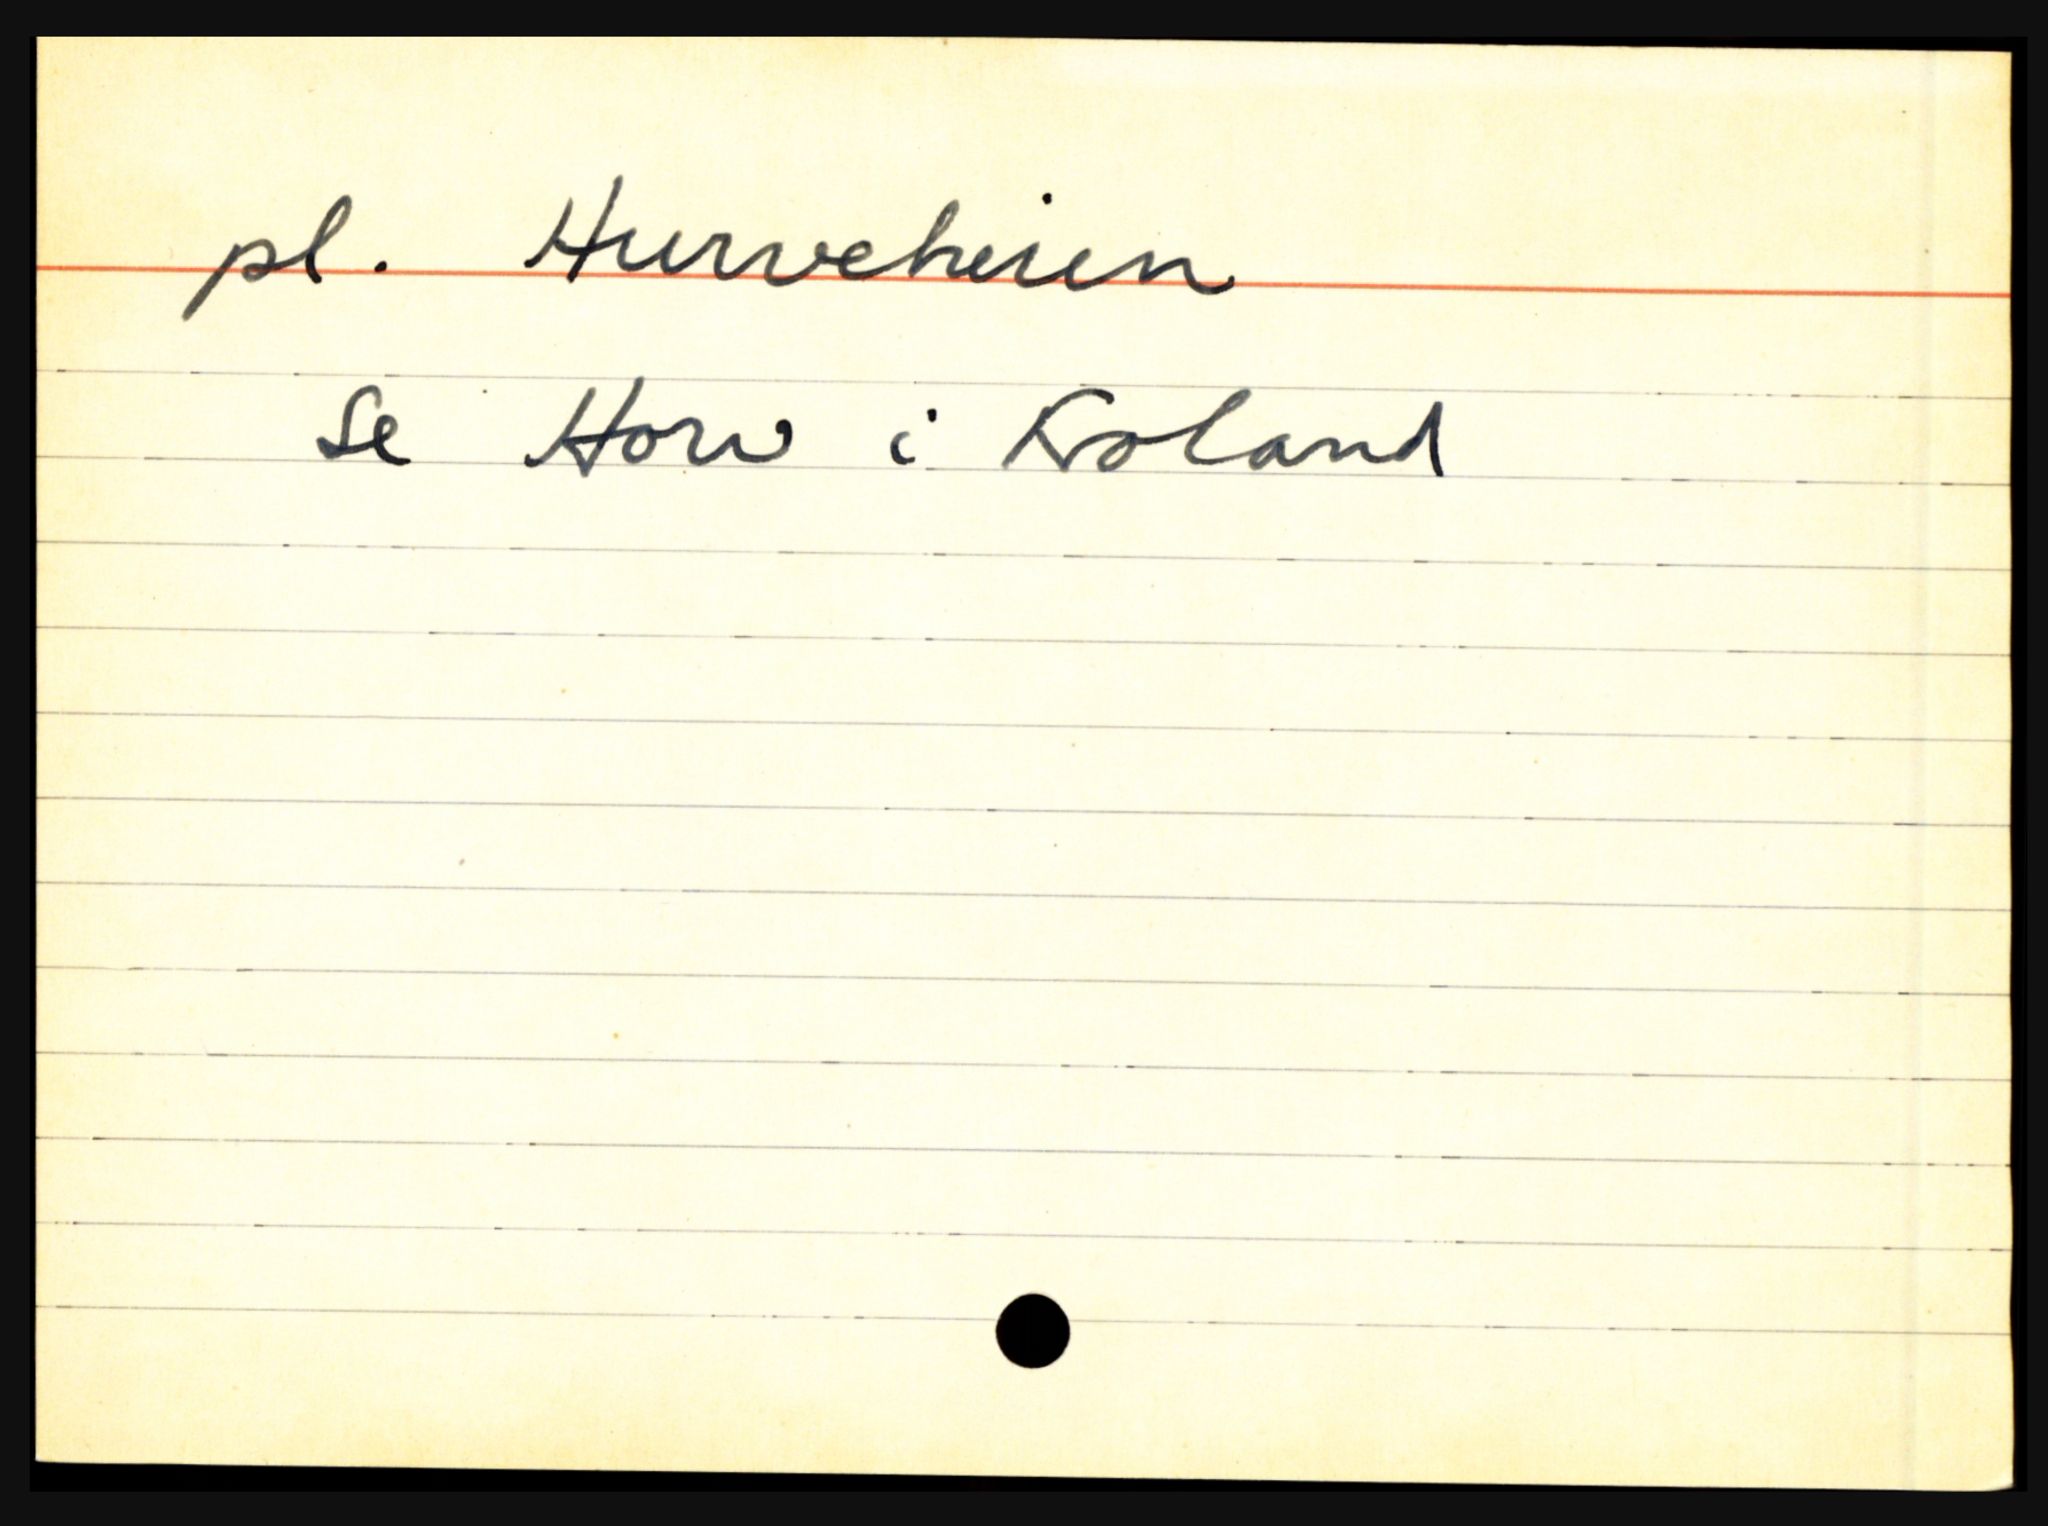 pl. Hurveheien
Se Horv i Froland